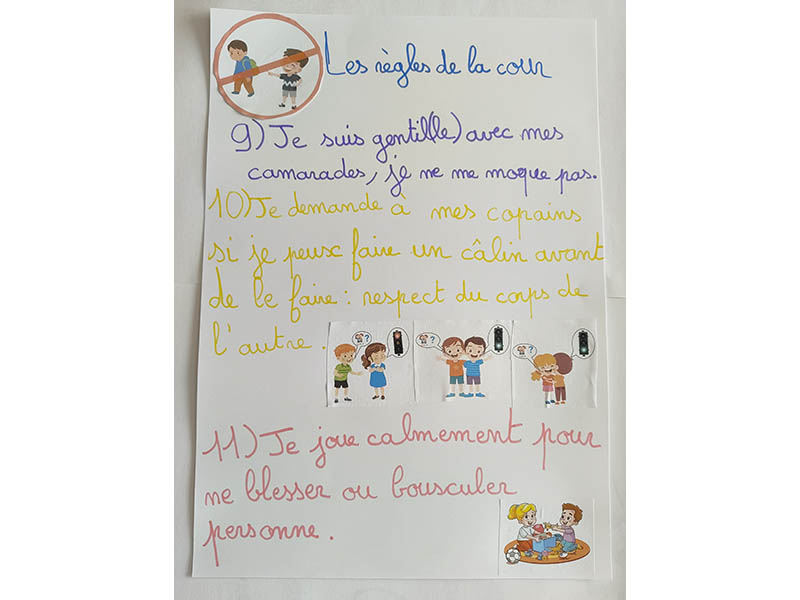 Les règles de la cour
9) Je suis gentil(le) avec mes
camarades, je ne me moque pas.
10) Je demande à mes copains
si je peux faire un câlin avant
de le faire : respect du corps de
l'autre.
? ? ?
11) Je joue calmement pour
ne blesser ou bousculer
personne.